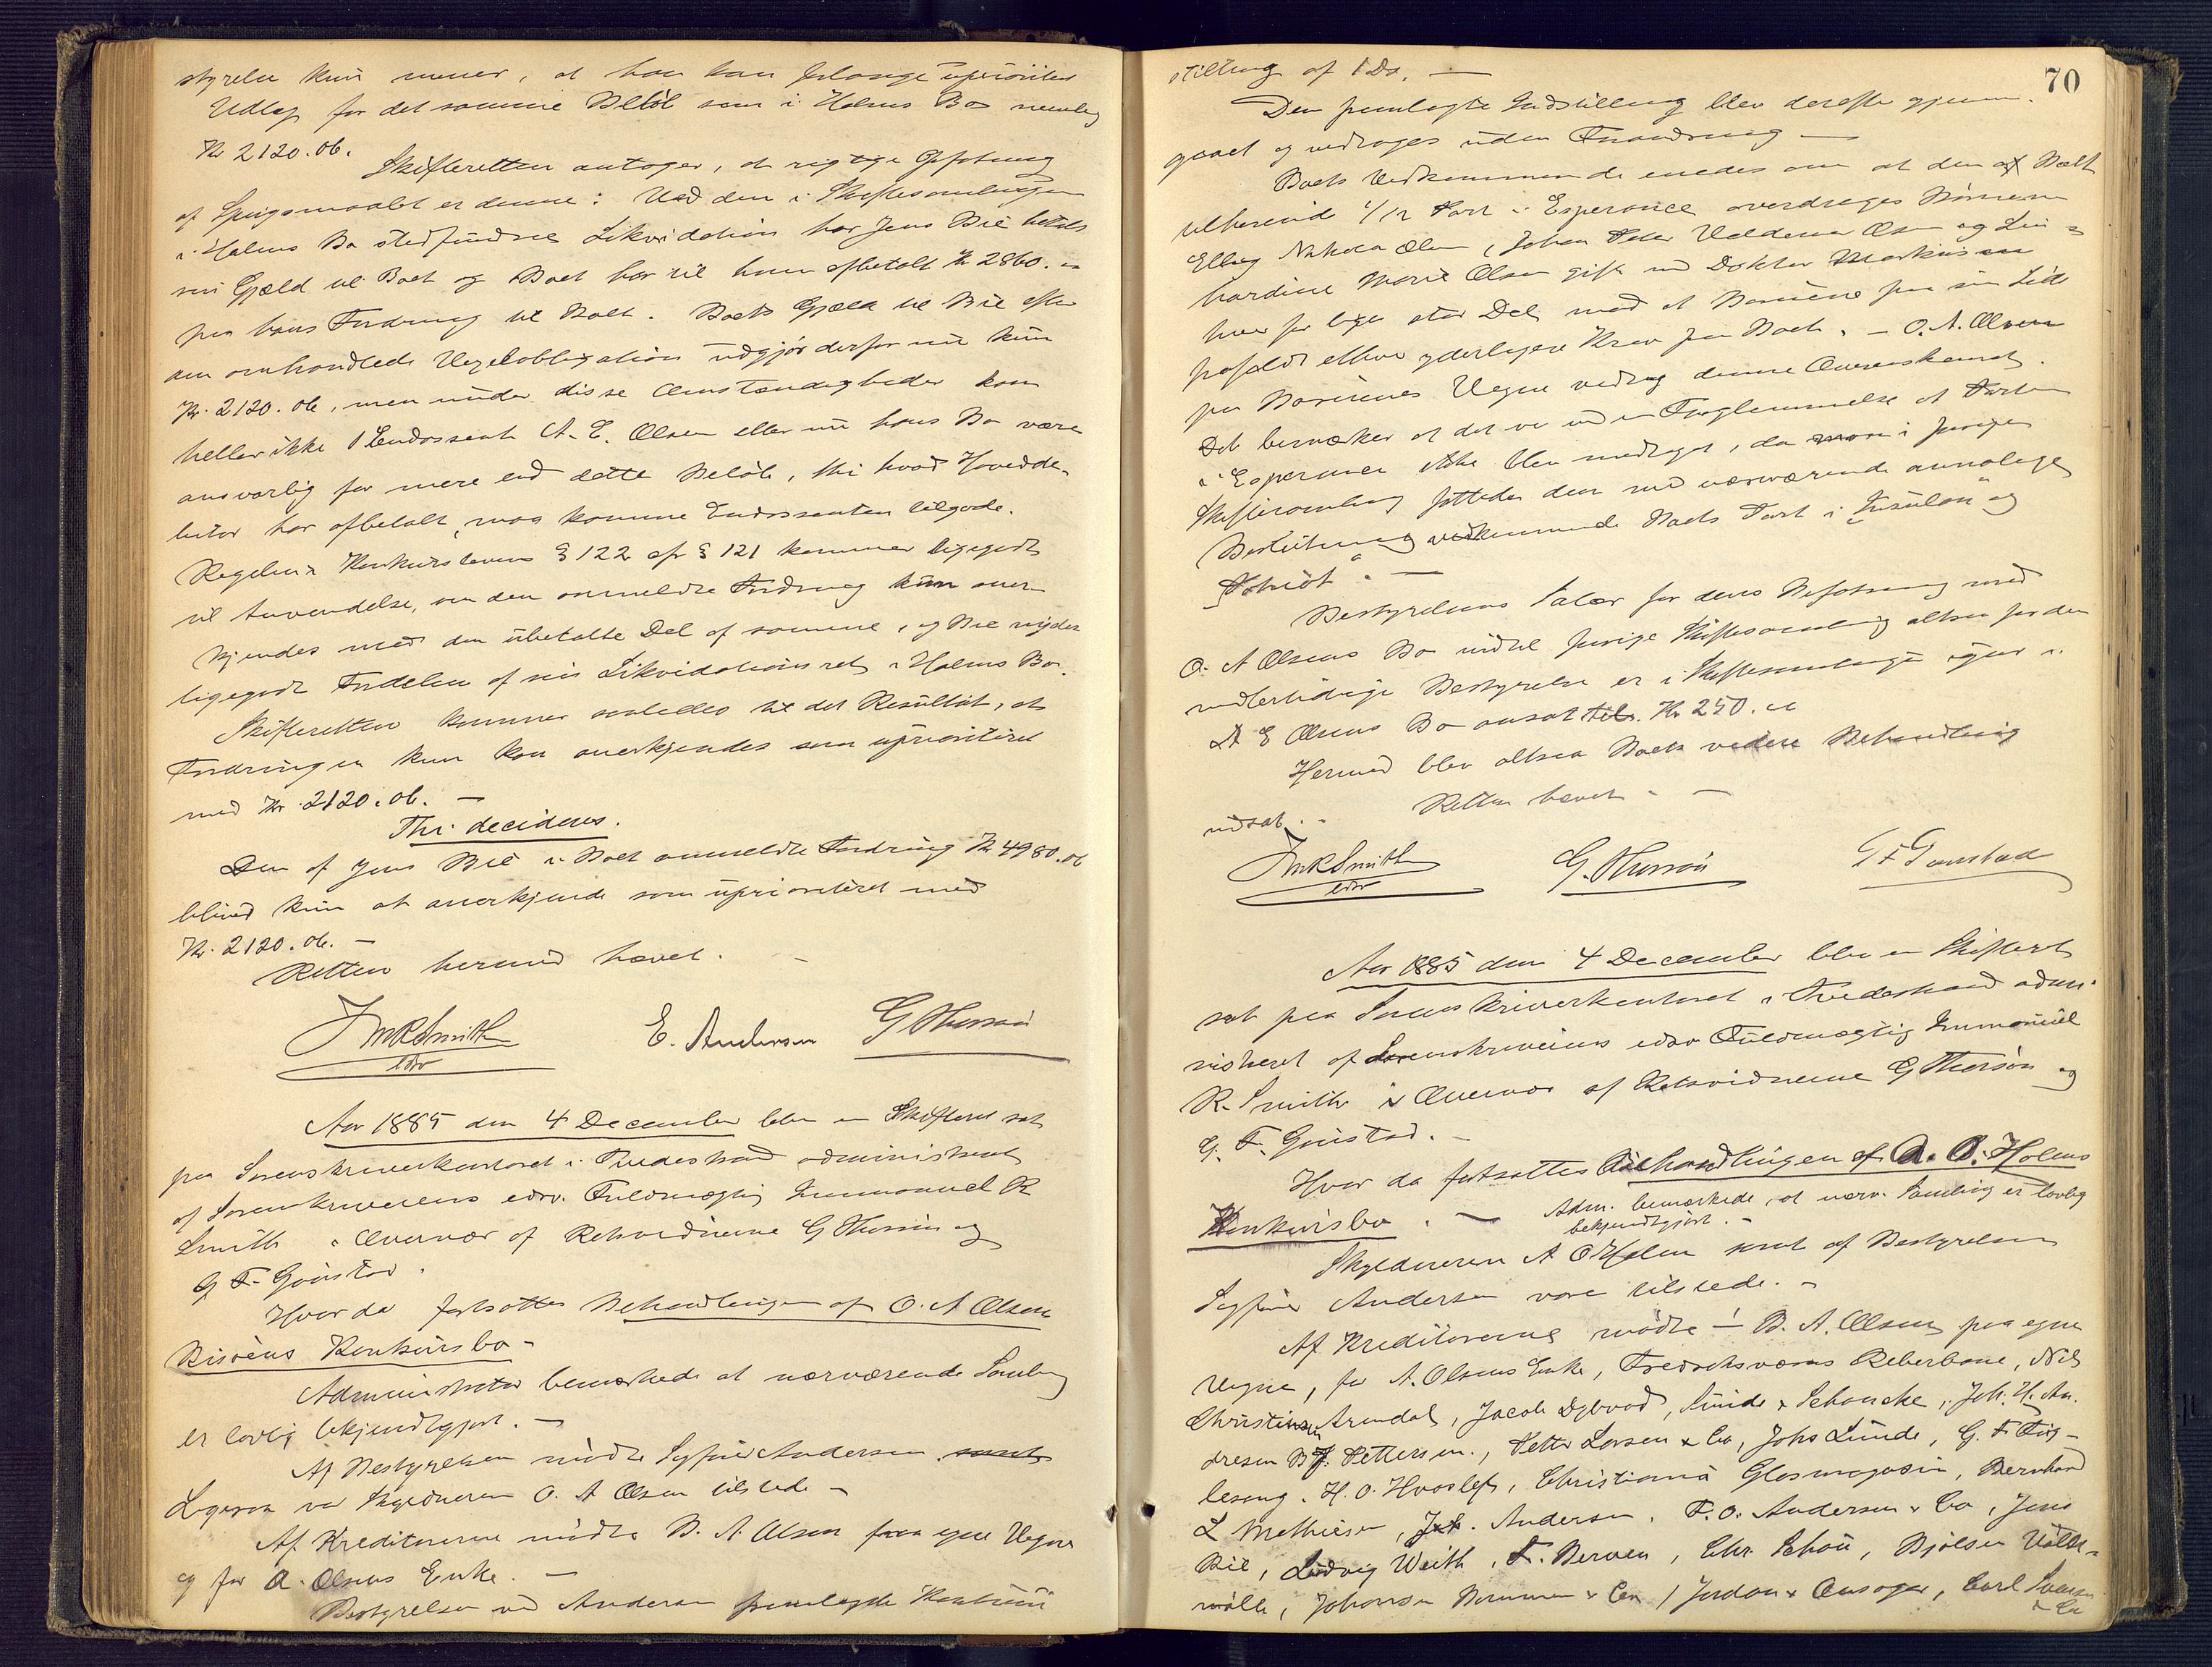 styrelse kun mener, at han kan forlange uprioritert
Udlæg for det samme Beløb som i Holms Bo nemlig
Kr 2120.06.
Skifteretten antager, at rigtige Opfatning
af Spørgsmaalet er denne: Ved den i Skiftesamlingen
i Holms Bo stedfundne Likvidation har Jens Bie betalt
sin Gjæld til Boet og Boet har til ham afbetalt Kr 2860.
paa hans Fordring til Boet. Boets Gjæld til Bie efter
den omhandlede Vexelobligation udgjør derfor nu kun
Kr. 2120.06, men under disse Omstændigheder kan
heller ikke Endossent A. E. Olsen eller nu hans Bo være
ansvarlig for mere end dette Beløb, thi hvad Hovedde-
bitor har afbetalt, maa komme Endossenten tilgode.
Regelen i Konkurslovens § 122 cfr § 121 kommer ligegodt
til Anvendelse, om den anmeldte Fordring kun aner-
kjendes med den ubetalte Del af samme, og Bie nyder
ligegodt Fordelen af sin Likvidationsret i Holms Bo.
Skifteretten kommer saaledes til det Resultat, at
Fordringen kun kan anerkjendes som uprioritert
med Kr. 2120.06. —
Thi decideres.
Den af Jens Bie i Boet anmeldte Fordring Kr 4980.06
bliver kun at anerkjende som uprioriteret med
Kr. 2120.06. —
Retten hermed hævet. —
ImRSmith
edsv
E. Andersen
G Thorsøn
Aar 1885 den 4 December blev en Skifteret sat
paa Sorenskriverkontoret i Tvedestrand administreret
af Sorenskriverens edsv. Fuldmægtig Immanuel R
Smith i Overvær af Retsvidnerne G Thorsøn og
G F. Goustad.
Hvorda fortsattes Behandlingen af O. A Olsen
Risøens Konkursbo —
Administrator bemærkede at nærværende Samling
er lovlig bekjendtgjort. —
Af Bestyrelsen mødte Sagfører Andersen samt
Ligesaa var Skyldneren O. A Olsen tilstede —
Af Kreditorerne mødte B. A. Olsen paa egne Vegne
og for A. Olsens Enke. —
Bestyrelsen ved Andersen fremlagde
stilling af 1 Ds. —
70
Den fremlagte Indstilling blev derefter gjennem-
gaaet og vedtoges uden Forandring —
Boets Vedkommende enedes om at den af Boet
tilhørende 1/12 Part i Esperance overdrages Børnene
Elling Nikolai Olsen, Johan Peter Valdemar Olsen og Lin-
hardine Marie Olsen gift med Doktor Markussen
hver for lige stor Del mod at Børnene paa sin Side
frafaldt ethvert yderligere Krav paa Boet. — O. A. Olsen
paa Børnenes Vegne vedtog denne Overenskomst.
Det bemærkes at det var ved en Forglemmelse at Parten
i Esperance ikke blev medtaget, da man i forrige
Skiftesamling fattede den med nærværende annaloge
Beslutning vedkommende Boets Part i "Insulan" og
"Patriot". —
Bestyrelsens Salær for dens Befatning med
O. A Olsens Bo indtil forrige Skiftesamling altsaa for den
midlertidige Bestyrelse er i Skiftesamlingen igaar i
A E Olsens Bo ansat til. Kr 250.
Hermed blev altsaa Boets videre Behandling
udsat. — Retten hævet. —
ImRSmith
edsv
G. Thorsøn
G F Goustad
Aar 1885 den 4 December blev en Skifteret
sat paa Sorenskriverkontoret i Tvedestrand admi-
nistreret af Sorenskriverens edsv Fuldmægtig Immanuel
R. Smith i Overvær af Retsvidnerne G Thorsøn og
G. F. Goustad. —
Hvor da fortsattes Behandlingen af A. O. Holms
Konkursbo. — Adm. bemærkede, at nærv. Samling er lovlig
bekjendtgjort. —
Skyldneren A O Holm samt af Bestyrelsen
Sagfører Andersen vare tilstede. —
Af Kreditorerne mødte — B. A. Olsen paa egne
Vegne, for A. Olsens Enke, Fredriksværns Reberbane, Nils
Christensen Arendal, Jacob Dybwad, Sunde & Schancke, Joh. H. An-
dresen B. J. Pettersen, Petter Larsen & Co, Johs Lunde, G. F.
H. O. Hvoslefs, Christiania Glasmagasin, Bernhard
L Mathiesen, Joh. Andersen, F. O. Andersen & Co, Jens
Bie, Ludvig Weith, F. Berven, Chr Schou, Bjølsen Valse-
mølle, Johansen Bommen & Co, Jordan & Ansager, Carl
& Co